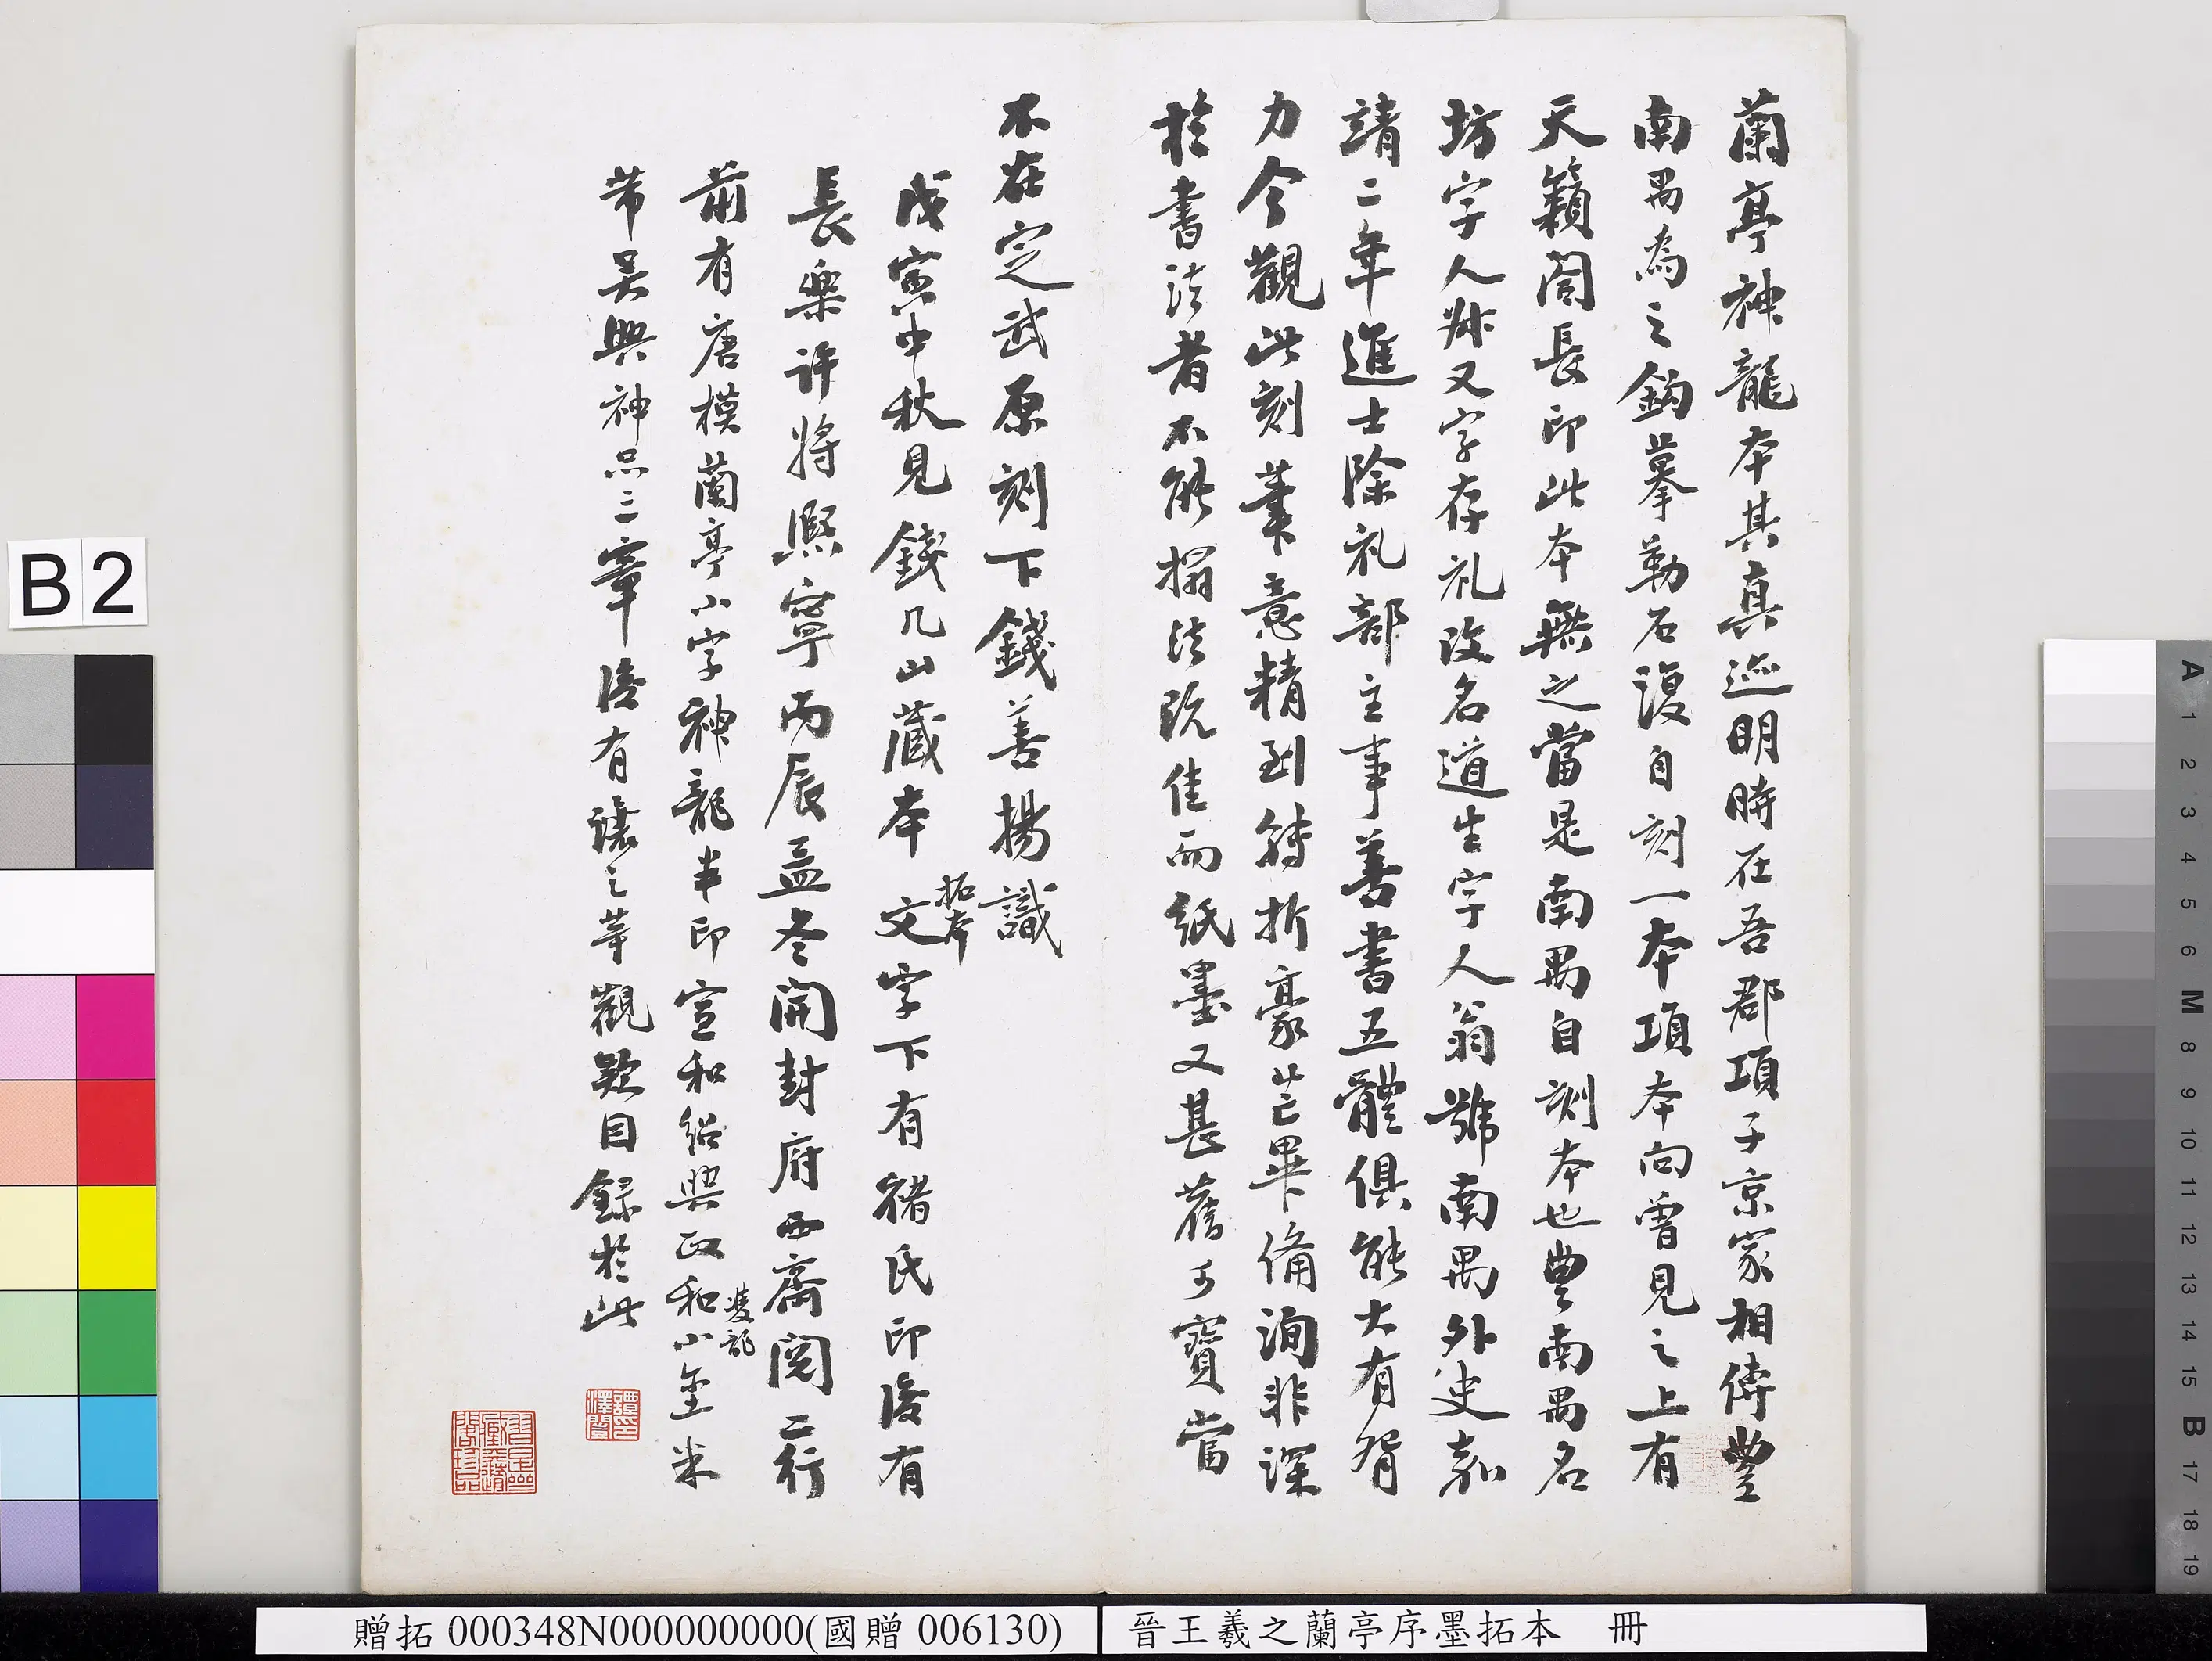 蘭亭神龍本其真迹明時在吾郡項子京家相傳豐
南禺為之鈎摹勒石復自刻一本項本向曾見之上有
天籟閣長印此本無之當是南禺自刻本也豐南禺名
坊字人叔又字存礼改名道生字人翁號南禺外史嘉
靖二年進士除礼部主事善書五體俱能大有腎
力今觀此刻筆意精到轉折豪芒畢備洵非深
於書法者不能搨法既佳而紙墨又甚舊可寶當
不在定武原刻下錢善揚識
戊寅中秋見錢几山藏本文字下有褚氏印後有
拓本
長樂許將熙寧丙辰孟冬開封府西齋閱二行
前有唐模蘭亭小字神龍半印宣和紹興政和小璽米
雙龍
芾吳興神品三章後有讓之等觀款因錄於此
譚澤闓印
B2
贈拓000348N000000000(國贈006130)
晉王羲之蘭亭序墨拓本 冊
A 1 2 3 4 5 6 M 8 9 10 11 12 13 14 15 B 17 18 19